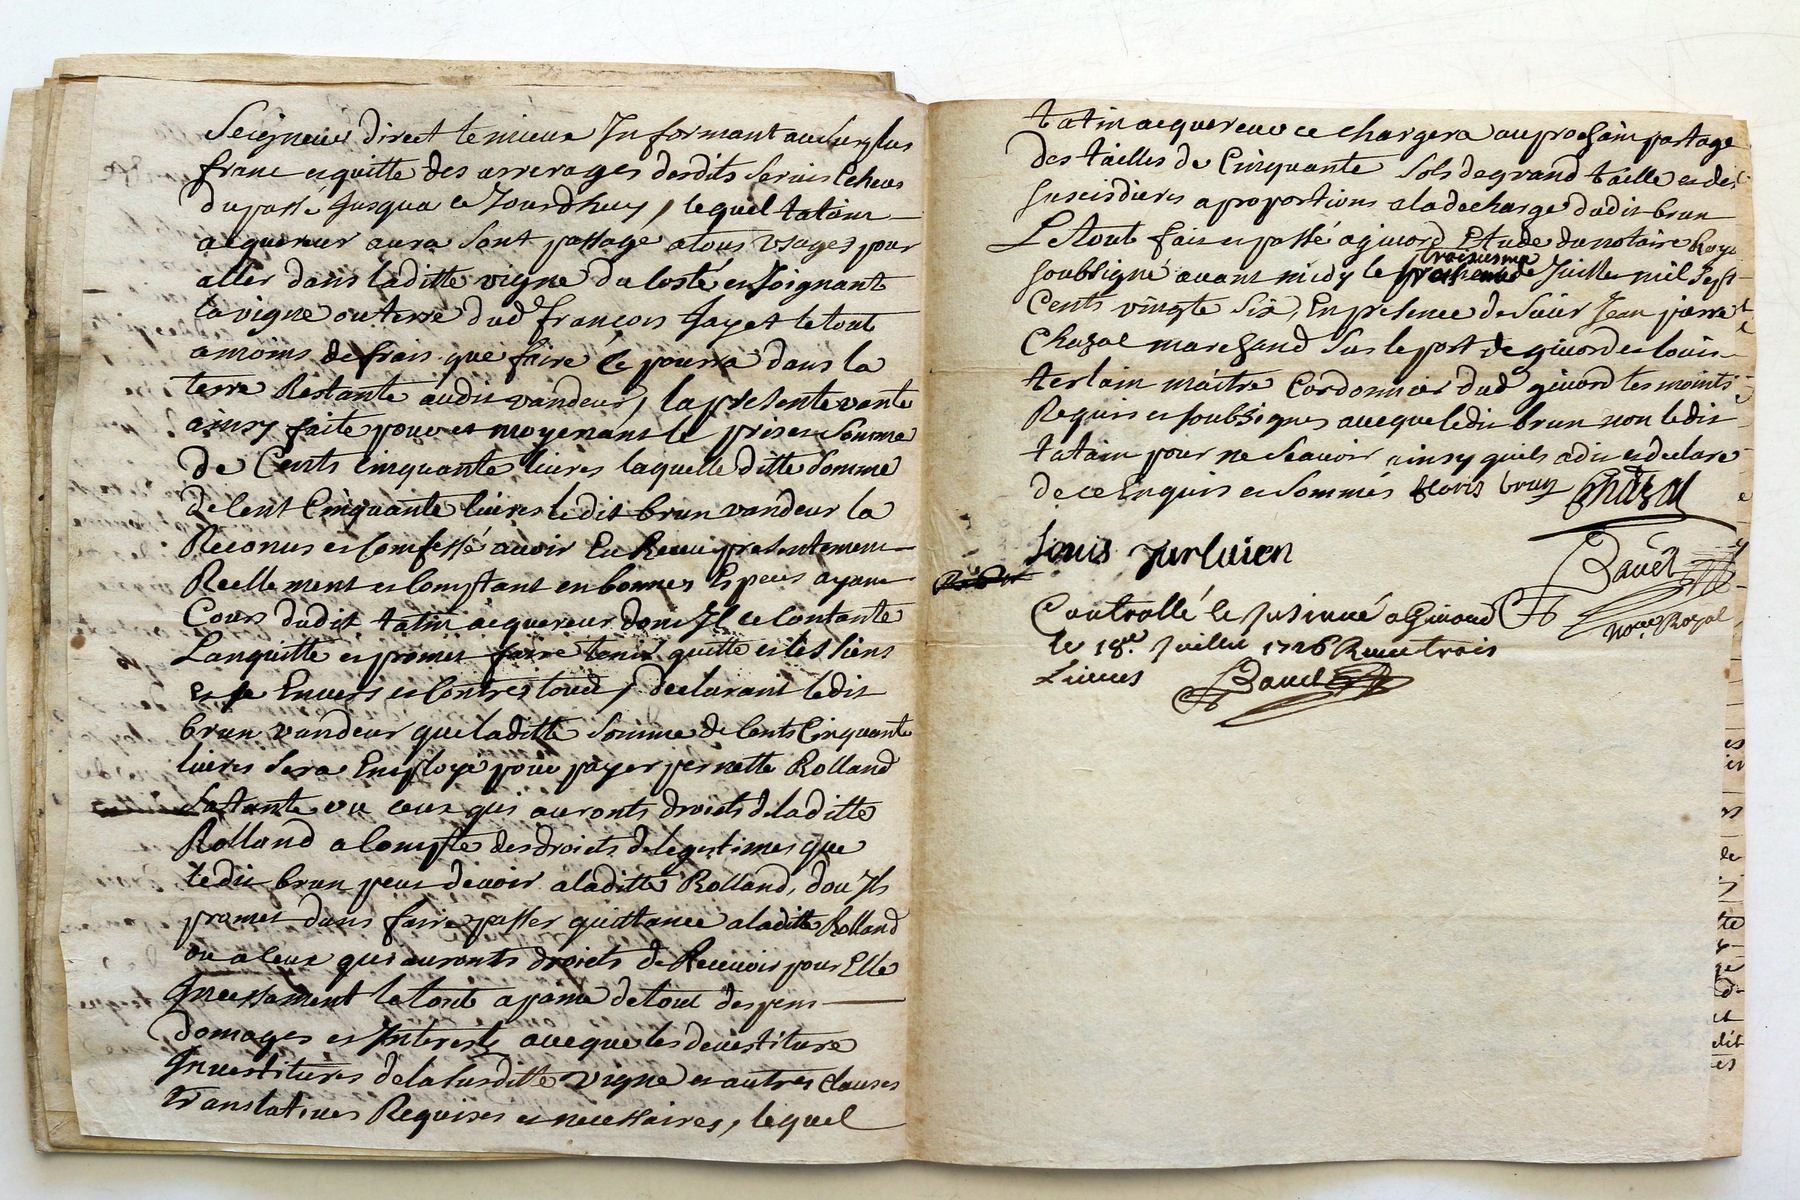 Seigneur direct le mieux Informant au Surplus
franc et quitte des arrerages desdits Servis Echeus
du passé Jusqua ce Jourdhuy, lequel tatain
acquereur aura Sont passage a tous Usages pour
aller dans laditte vigne du Costé en Joignant
la vigne ou terre dud françois Jayet le tout
a moins de frais que faire Ce pourra dans la
terre Restante audit vandeur, la presente vante
ainsy faite pour et moyenant le pris et Somme
de Cents cinquante livres laquelle ditte Somme
de Cent Cinquante livres ledit brun vandeur la
Reconus et Confessé avoir Eu Receu presentement
Reellement et Comptant en bonnes Especes ayant
Cours dudit tatin acquereur dont Il ce Contante
Lanquitte et promet faire tenir quitte et les siens
Envers et Contres tous, declarant ledit
brun vandeur que laditte Somme de Cents Cinquante
livres Sera Employe pour payer pernette Rolland
Sa tante ou ceux qui auronts droiets de laditte
Rolland a Compte des droiets de legitimes que
ledit brun peut devoir a laditte Rolland, dou Ils
promet dans faire passer quittance a laditte Rolland
ou a Ceux qui auronts droiets de Recevoir pour Elle
Incessament le tout a paine de tout despens
domages et Interests avecque les devestiture
Investitures de la Susditte vigne et autres Clauses
translatives Requises et necessaires, lequel
tatin acquereur ce chargera au prochain partage
des tailles de Cinquante Sols de grand taille et des
Inscidures a proportions a la decharge dudit brun
Le tout fait et passé a givord Etude du notaire Roya
Soubsigné avant midy le troisiesme de Juillet mil Sept
Cents vingte Six, En presence de Sieur Jean pierre
Chazal marchand Sur le port de givord et louis
terlain maitre Cordonnier dud givord tesmoints
Requis et Soubsignes avecque ledit brun non ledit
tatain pour ne Scavoir ainsy quil a dit et declare
de ce Enquis et Sommés brun Chazal
Louis
Bauet
Controllé et Insinué a Givord
No.re Royal
le 18.e Juillet 1726 Receu trois
Livres Bauet